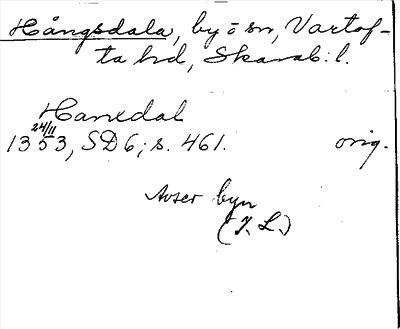 Hångsdala, by ō sn, Vartof-
ta hd, Skarab. l.
Hanxdal
24/11
1353, SD 6, s. 461. orig.
Avser byn
(I. L.)